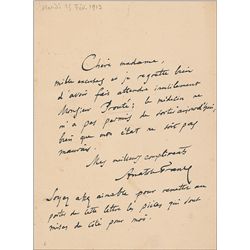 Mardi 25 Fév. 1913
Chère madame,
mille excuses et je regrette bien
d'avoir fait attendre inutilement
Monsieur Prouté: le médecin ne
m'a pas permis de sortir aujourd'hui,
bien que mon état ne soit pas
mauvais.
Mes meilleurs compliments
Anatole France
Soyez assez aimable pour remettre au
porteur de cette lettre les pièces qui sont
mises de côté pour moi.